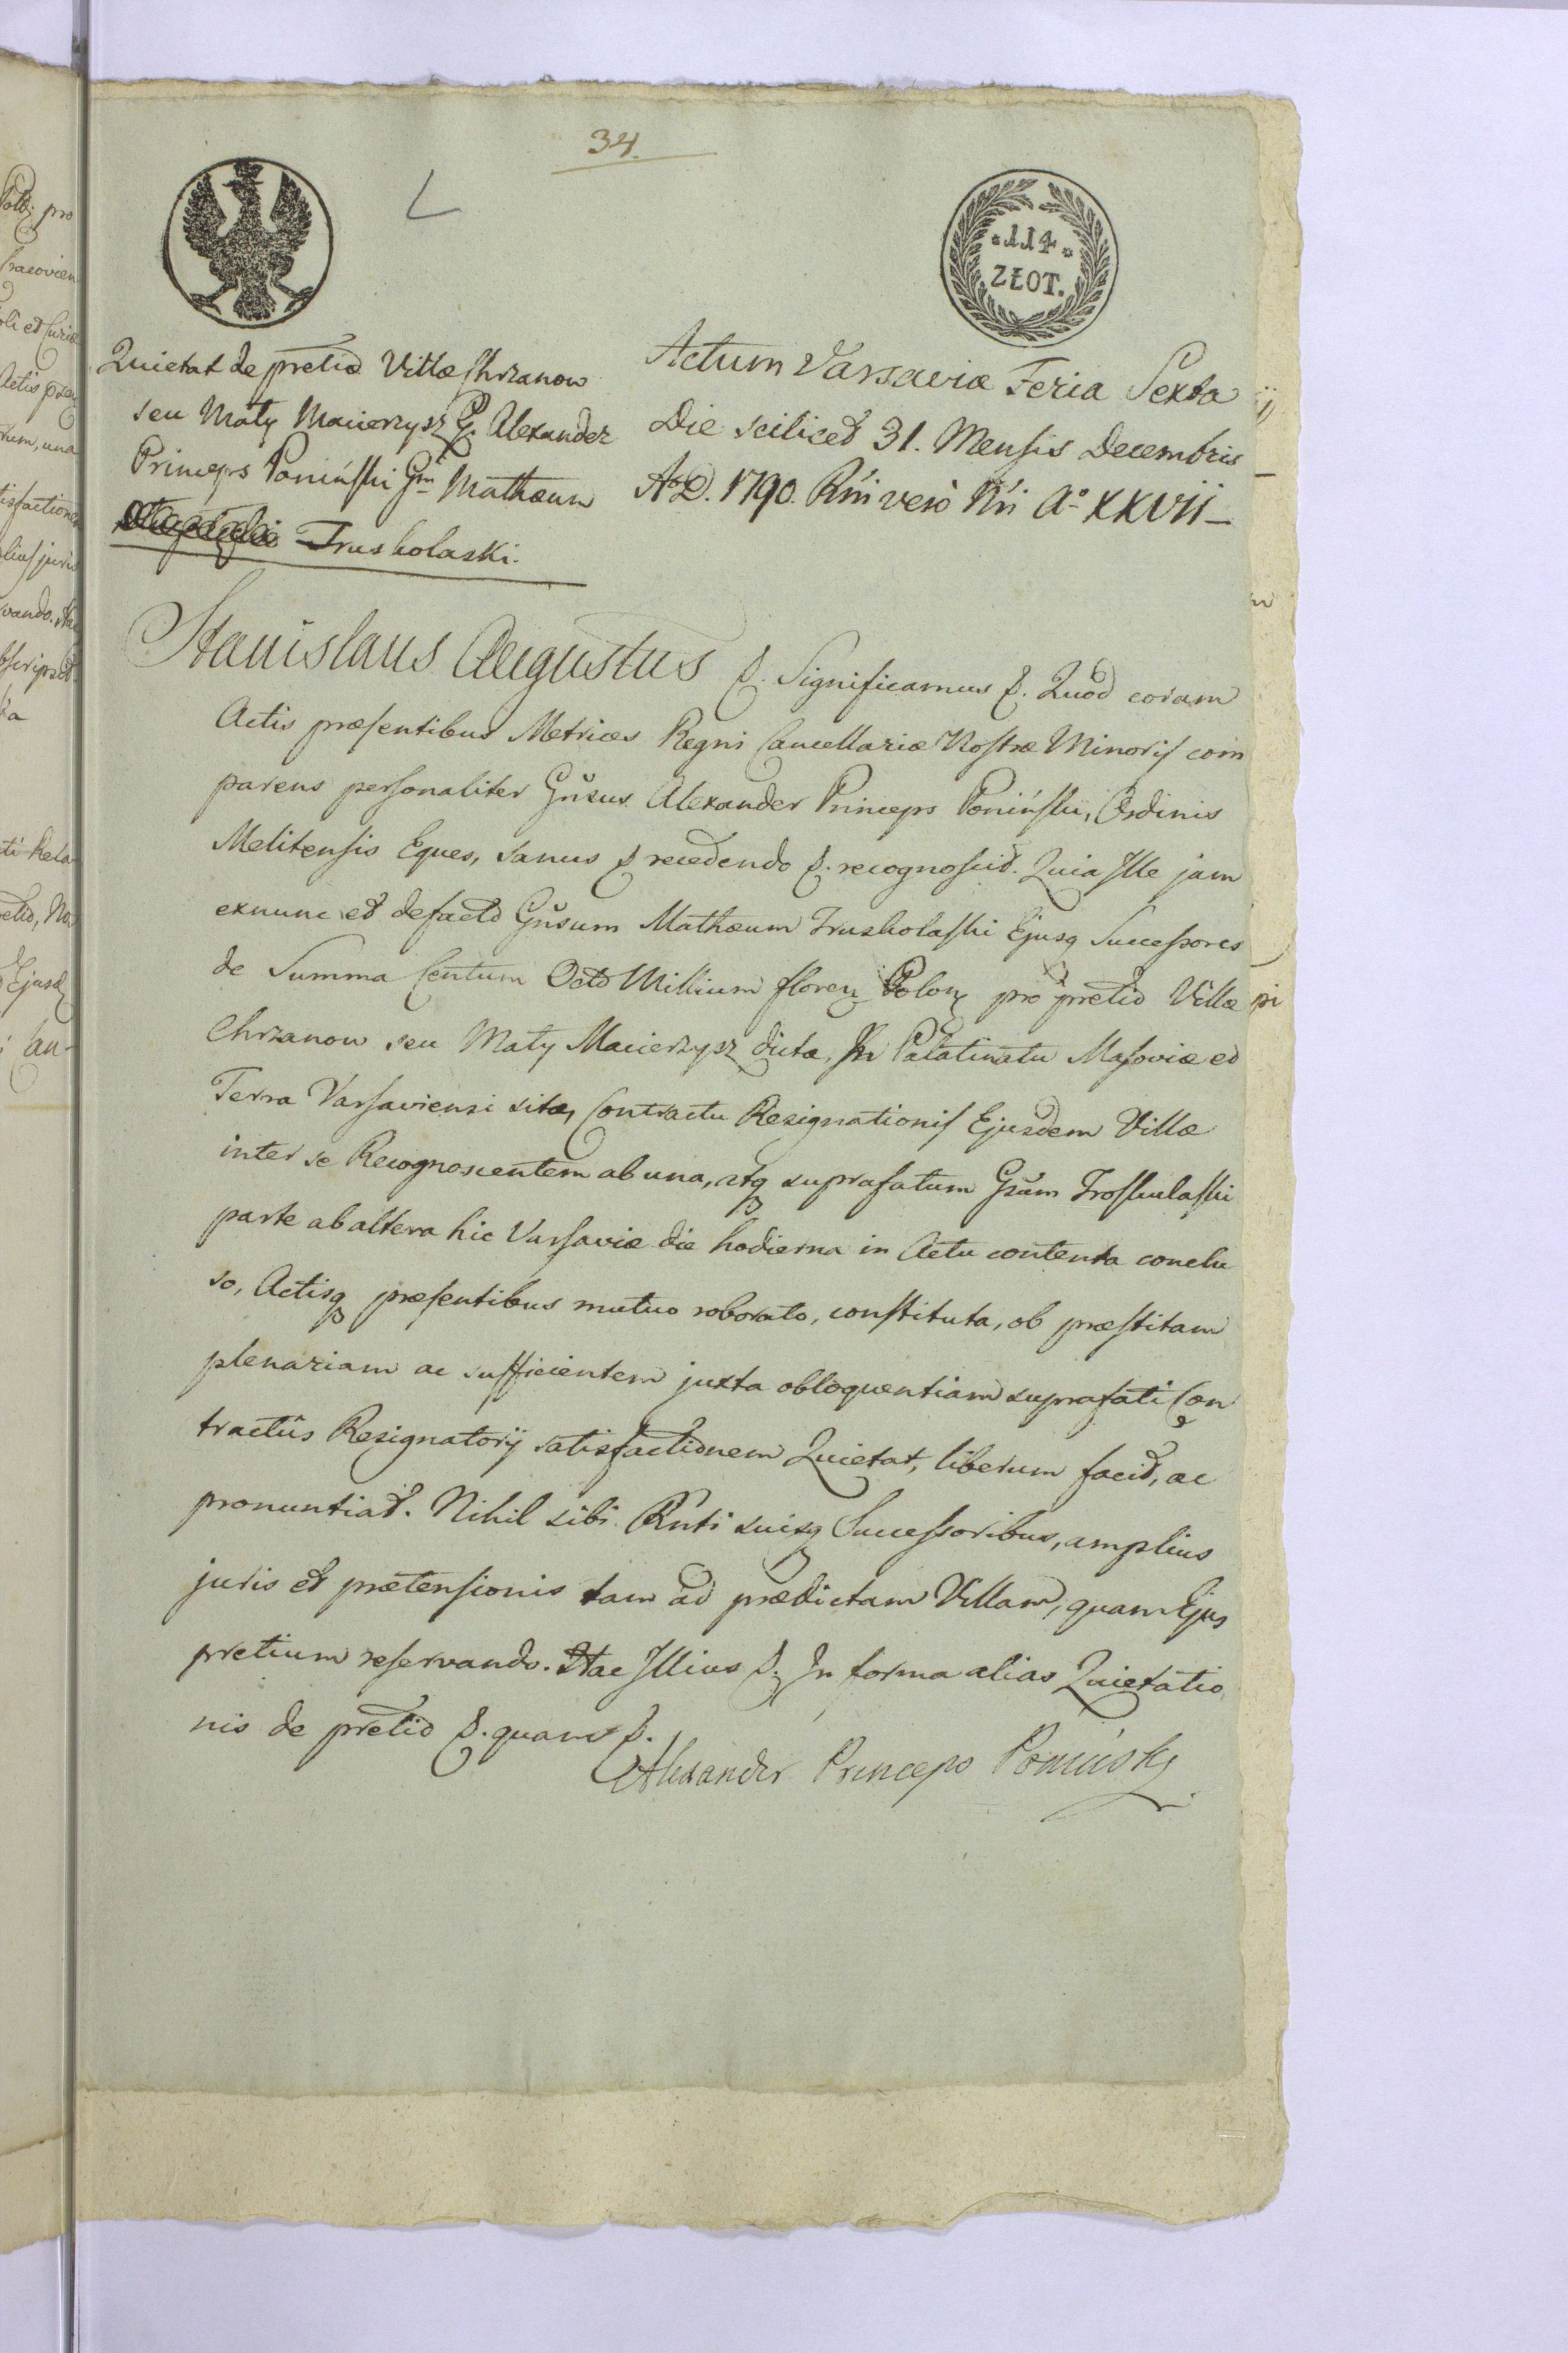 34.
114.
ZŁOT.
Quietat de pretio Villæ Chrzanow
seu Mały Macierzysz G. Alexander
Princeps Poniński Gm Mathæum
Truskolaski.
Actum Varsaviæ Feria Sexta
Die scilicet 31. Mensis Decembris
A.D. 1790. Rni vero Nri A° XXVII
Stanislaus Augustus &. Significamus &. Quod coram
Actis præsentibus Metrices Regni Cancellariæ Nostræ Minoris com
parens personaliter Gnsus Alexander Princeps Poniński, Ordinis
Melitensis Eques, sanus & recedendo &. recognoscit. Quia Ille jam
exnunc et defacto Gnsum Mathæum Truskolaski Ejusq Successores
de Summa Centum Octo Millium floren Polon pro pretio Villæ
Chrzanow seu Mały Macierzysz dictæ, In Palatinatu Masoviæ et
Terra Varsaviensi sitæ, Contractu Resignationis Ejusdem Villæ
inter se Recognoscentem ab una, atq suprafatum Gsum Troskulaski
parte ab altera hic Varsaviæ die hodierna in Actu contenta conclu
so, Actisq præsentibus mutuo roborato, constituta, ob præstitam
plenariam ac sufficientem juxta obloquentiam suprafati Con
tractus Resignatorij satisfactionem Quietat, liberum facit, ac
pronuntiat. Nihil sibi Rnti suisq Successoribus, amplius
juris et prætensionis tam ad prædictam Villam, quam Ejus
pretium reservando. Hac Illius &. In forma alias Quietatio
nis de pretio &. quam &.
Alexander Princeps Poniński